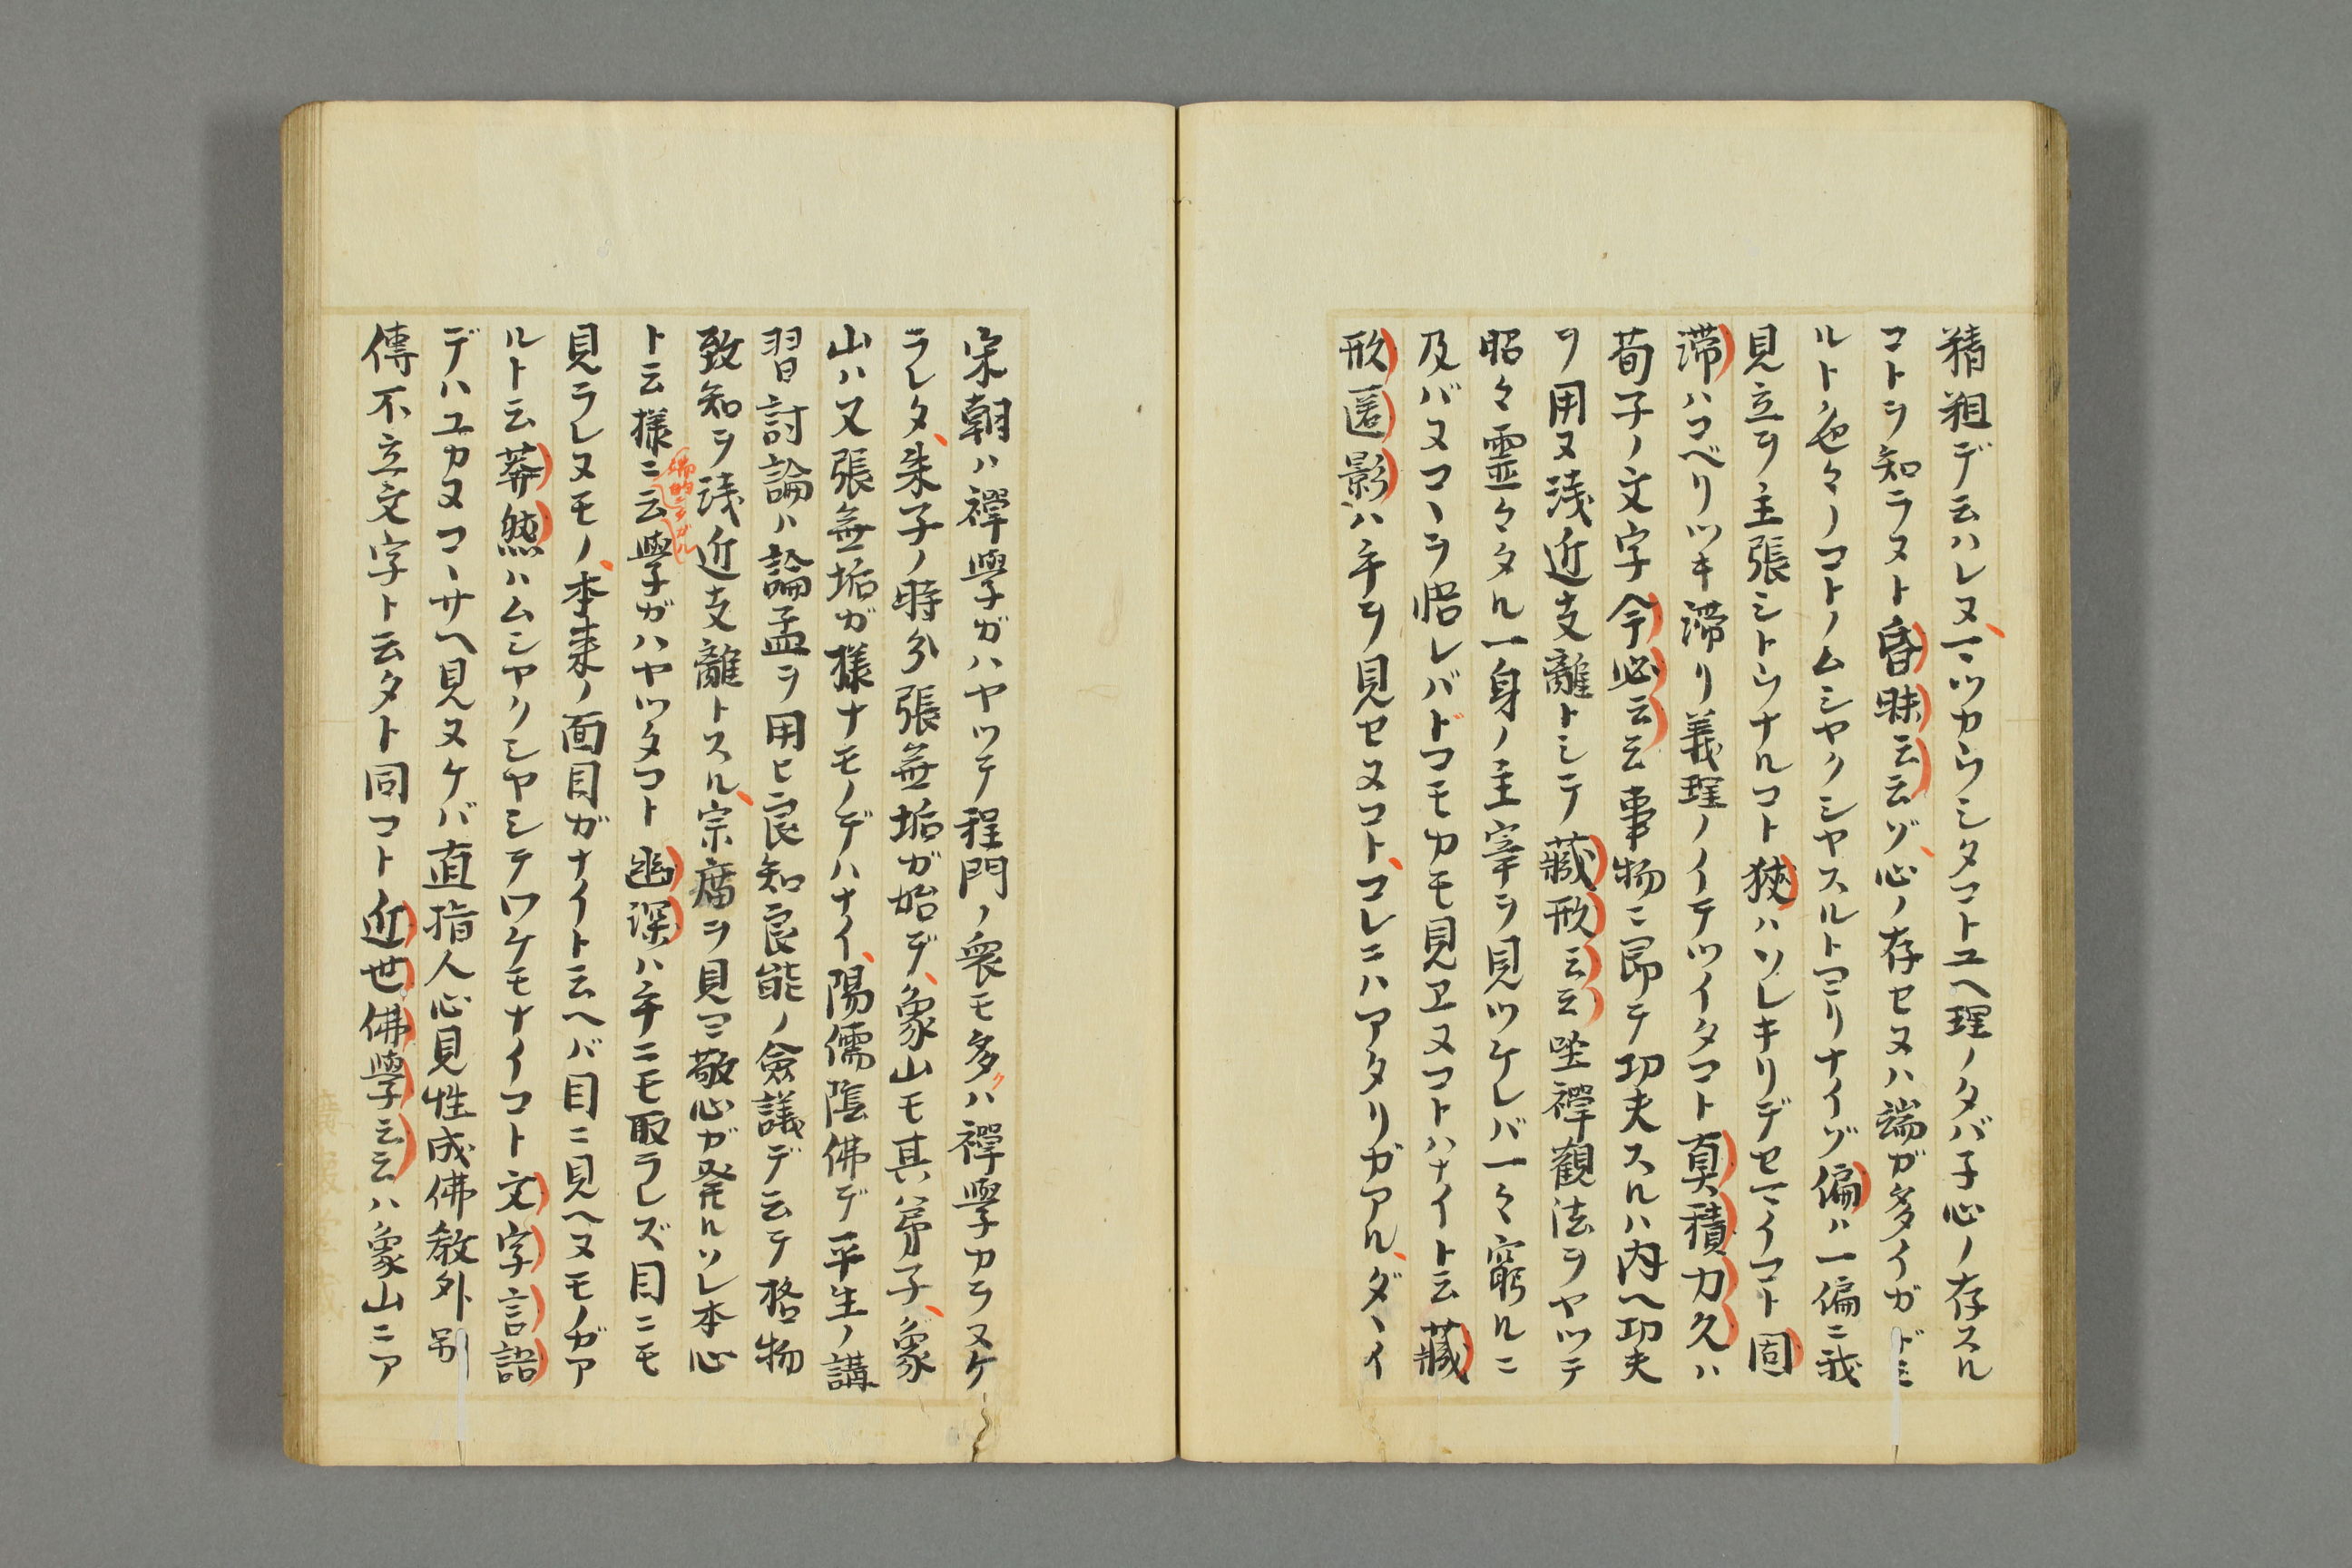 精粗デ云ハレヌ、一ツカウシタコトユヘ理ノタバ子心ノ存スル
コトヲ知ラヌト昏昧云云ゾ、心ノ存セヌハ端ガ多イガドミ
ルト色々ノコトノムシヤクシヤスルトマリナイゾ偏ハ一偏ニ我
見立ヲ主張シトウナルコト狹ハソレキリデセマイコト固
滯ハコベリツキ滯リ義理ノイテツイタコト真積力久ハ
荀子ノ文字今必云云事物ニ即テ功夫スルハ内ヘ功夫
ヲ用ヌ浅近支離トシテ藏形云云坐禪觀法ヲヤツテ
昭々霊々タル一身ノ主宰ヲ見ツケレバ一々窮ルニ
及バヌコヽヲ悟レバドコモカモ見ヱヌコトハナイト云藏
形匿影ハ手ヲ見セヌコト、コレニハアタリガアル、ダヽイ
宋朝ハ禪學ガハヤツテ程門ノ衆モ多クハ禪學カラヌケ
ラレタ、朱子ノ時分張無垢ガ始デ、象山モ其弟子、象
山ハ又張無垢ガ様ナモノデハナイ、陽儒陰佛デ平生ノ講
習討論ハ論孟ヲ用ヒ良知良能ノ僉議デ云テ格物
致知ヲ浅近支離トスル、宗廟ヲ見テ敬心ガ発ルソレ本心
ト云様ニ云學ガハヤツタコト幽深ハ手ニモ取ラレズ目ニモ
見ラレヌモノ、本来ノ面目ガナイト云ヘバ目ニ見ヘヌモノガア
ルト云莽然ハムシヤクシヤシテワケモナイコト文字言語
デハユカヌコヽサヘ見ヌケバ直指人心見性成佛教外別
傳不立文字ト云タト同コト近世佛學云云ハ象山ニア